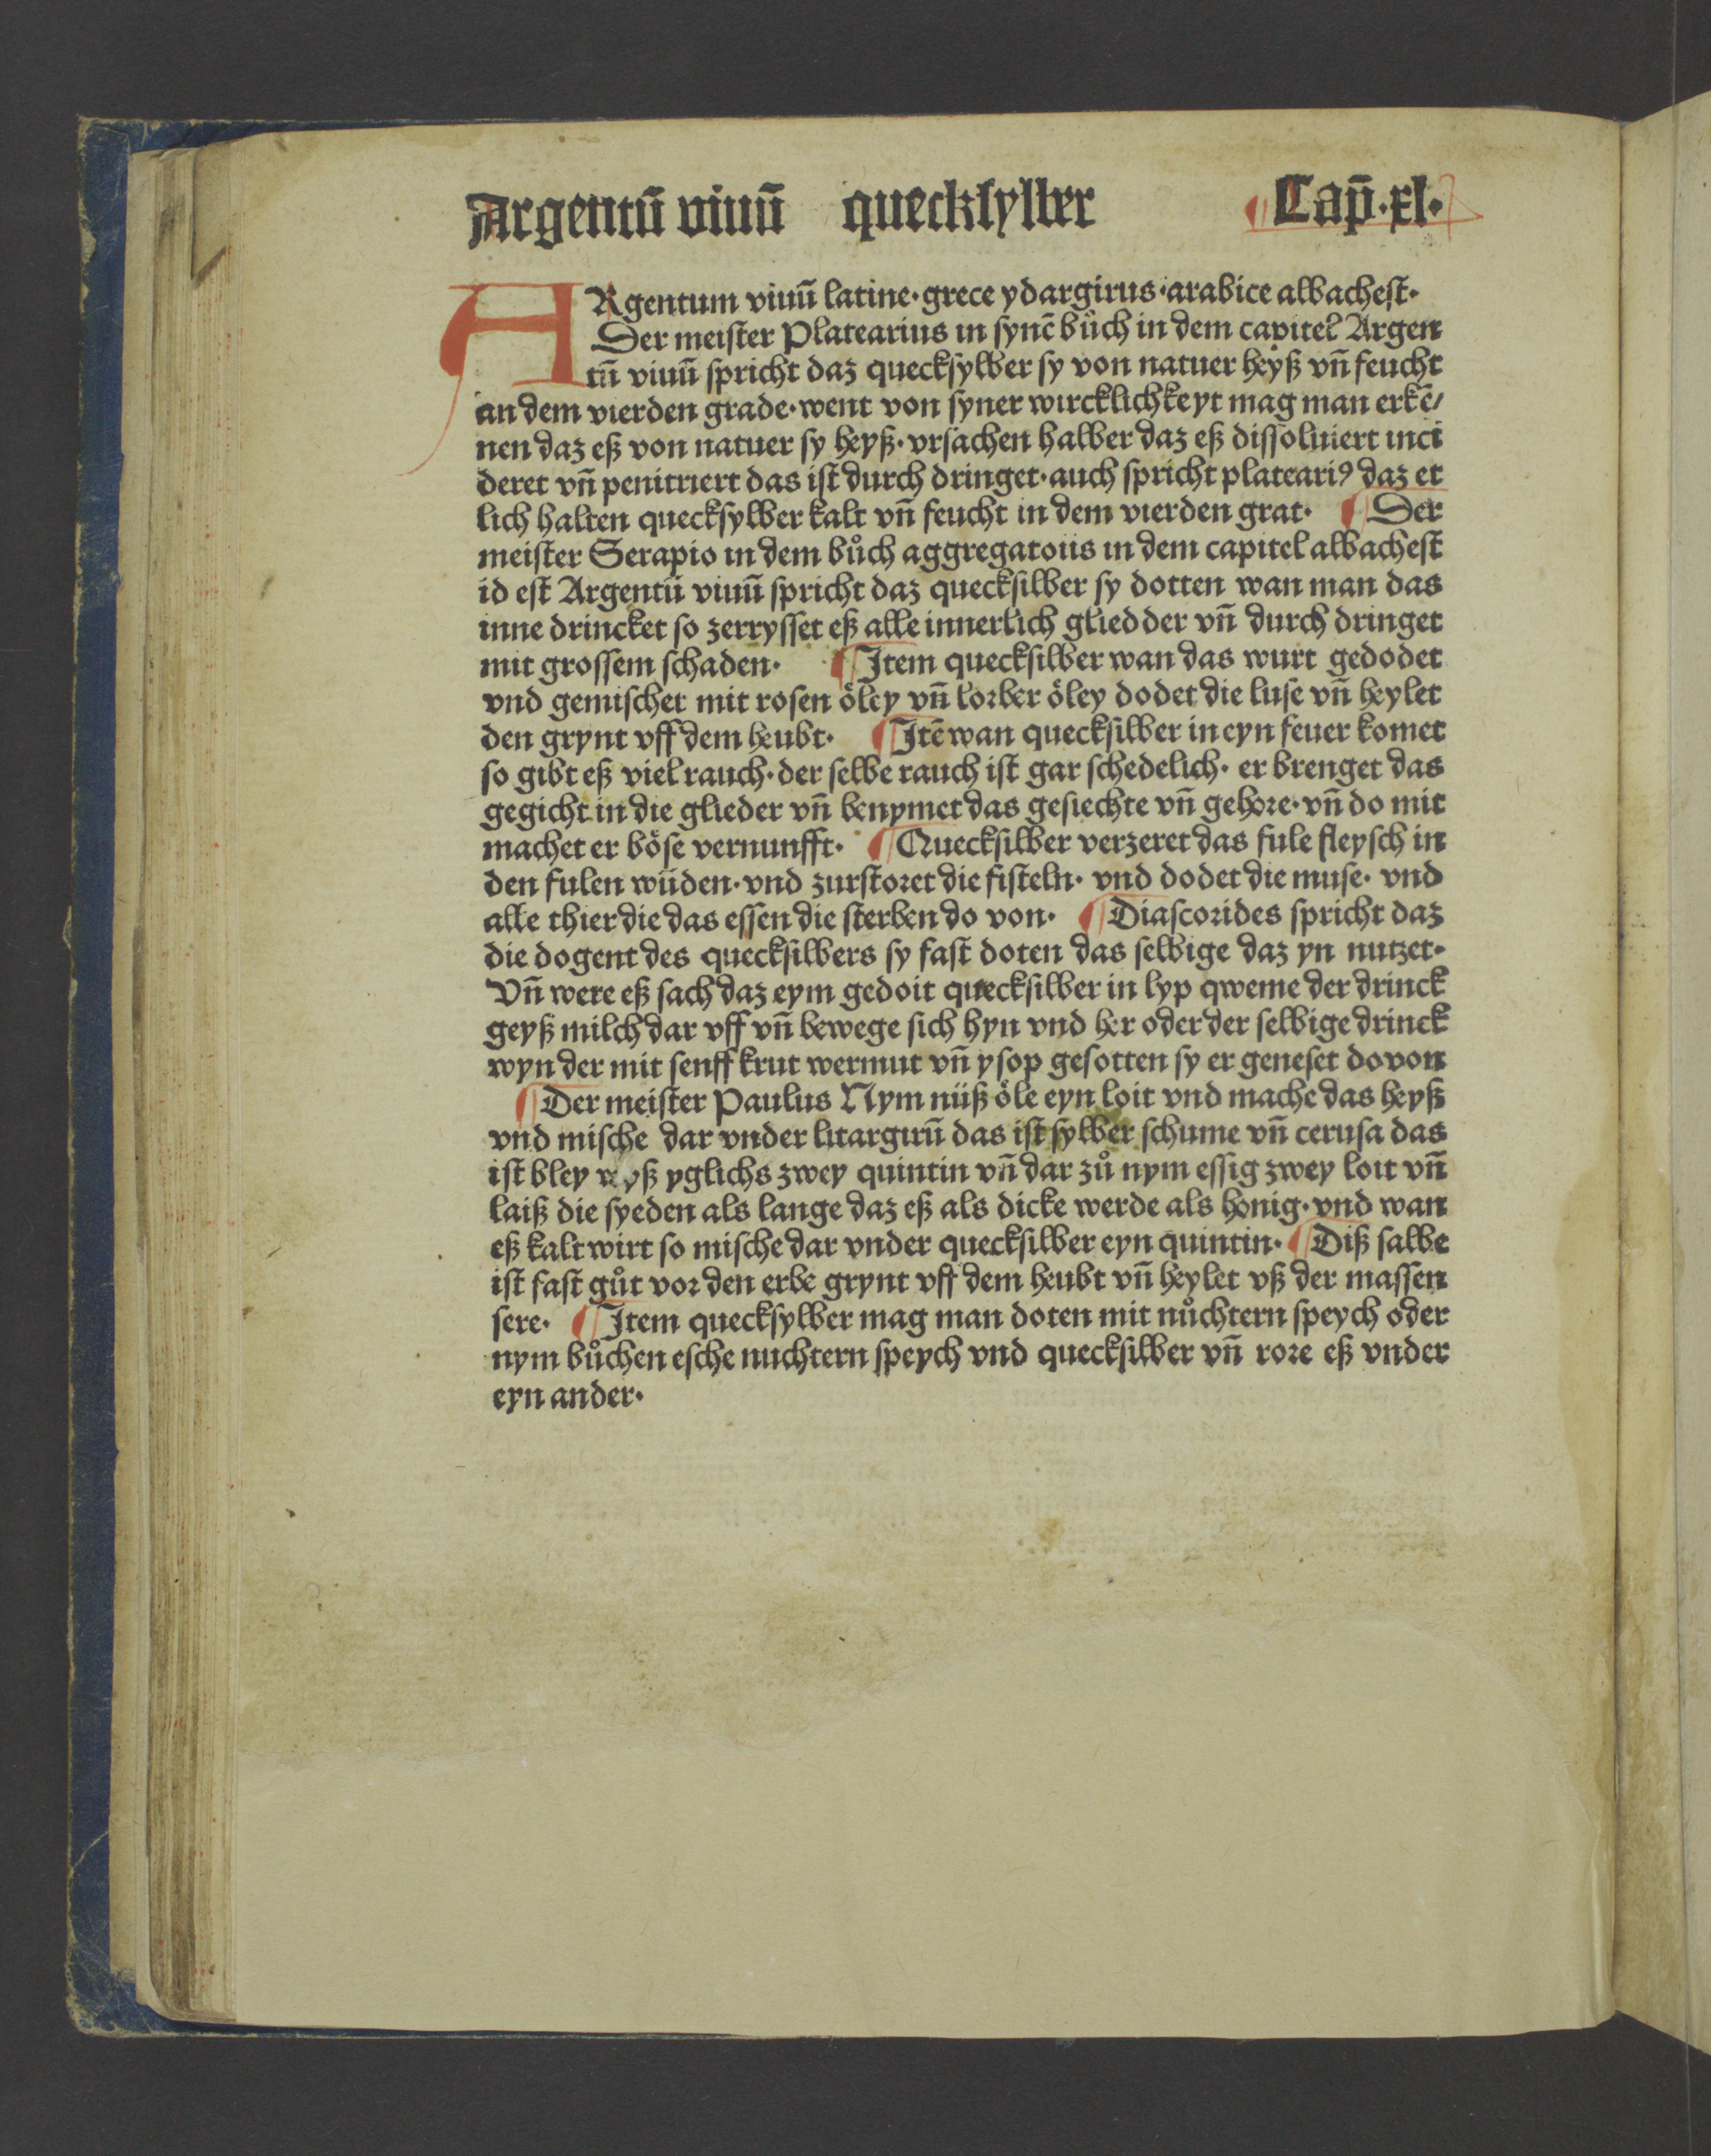 Argentū viuū quecksylber ¶ Cap̄.xl.
ARgentum viuū latine·grece ydargirus·arabice albachest·
Der meister Platearius in synē bůch in dem capitel Argen
tū viuū spricht daz quecksylber sy von natuer heyß vn̄ feucht
an dem vierden grade·went von syner wircklichkeyt mag man erkē/
nen daz eß von natuer sy heyß·vrsachen halber daz eß dissoluiert inci
deret vn̄ penitriert das ist durch dringet·auch spricht plateariꝰ daz et
lich halten quecksylber kalt vn̄ feucht in dem vierden grat· ¶ Der
meister Serapio in dem bůch aggregatoiis in dem capitel albachest
id est Argentū viuū spricht daz quecksilber sy dotten wan man das
inne drincket so zerrysset eß alle innerlich gliedder vn̄ durch dringet
mit grossem schaden· ¶ Item quecksilber wan das wurt gedodet
vnd gemischet mit rosen öley vn̄ lorber öley dodet die luse vn̄ heylet
den grynt vff dem heubt· ¶ Itē wan quecksilber in eyn feuer komet
so gibt eß viel rauch·der selbe rauch ist gar schedelich· er brenget das
gegicht in die glieder vn̄ benymet das gesiechte vn̄ gehore·vn̄ do mit
machet er böse vernunfft· ¶ Quecksilber verzeret das fule fleysch in
den fulen wüden·vnd zurstoret die fisteln· vnd dodet die muse· vnd
alle thier die das essen die sterben do von· ¶ Diascorides spricht daz
die dogent des quecksilbers sy fast doten das selbige daz yn nutzet·
Vn̄ were eß sach daz eym gedoit quecksilber in lyp qweme der drinck
geyß milch dar vff vn̄ bewege sich hyn vnd her oder der selbige drinck
wyn der mit senff krut wermut vn̄ ysop gesotten sy er geneset dovon
¶ Der meister Paulus Nym nüß öle eyn loit vnd mache das heyß
vnd mische dar vnder litargirū das ist sylber schume vn̄ cerusa das
ist bley weyß yglichs zwey quintin vn̄ dar zů nym essig zwey loit vn̄
laiß die syeden als lange daz eß als dicke werde als honig·vnd wan
eß kalt wirt so mische dar vnder quecksilber eyn quintin· ¶ Diß salbe
ist fast gůt vor den erbe grynt vff dem heubt vn̄ heylet vß der massen
sere· ¶ Item quecksylber mag man doten mit nůchtern speych oder
nym bůchen esche nuchtern speych vnd quecksilber vn̄ rore eß vnder
eyn ander·